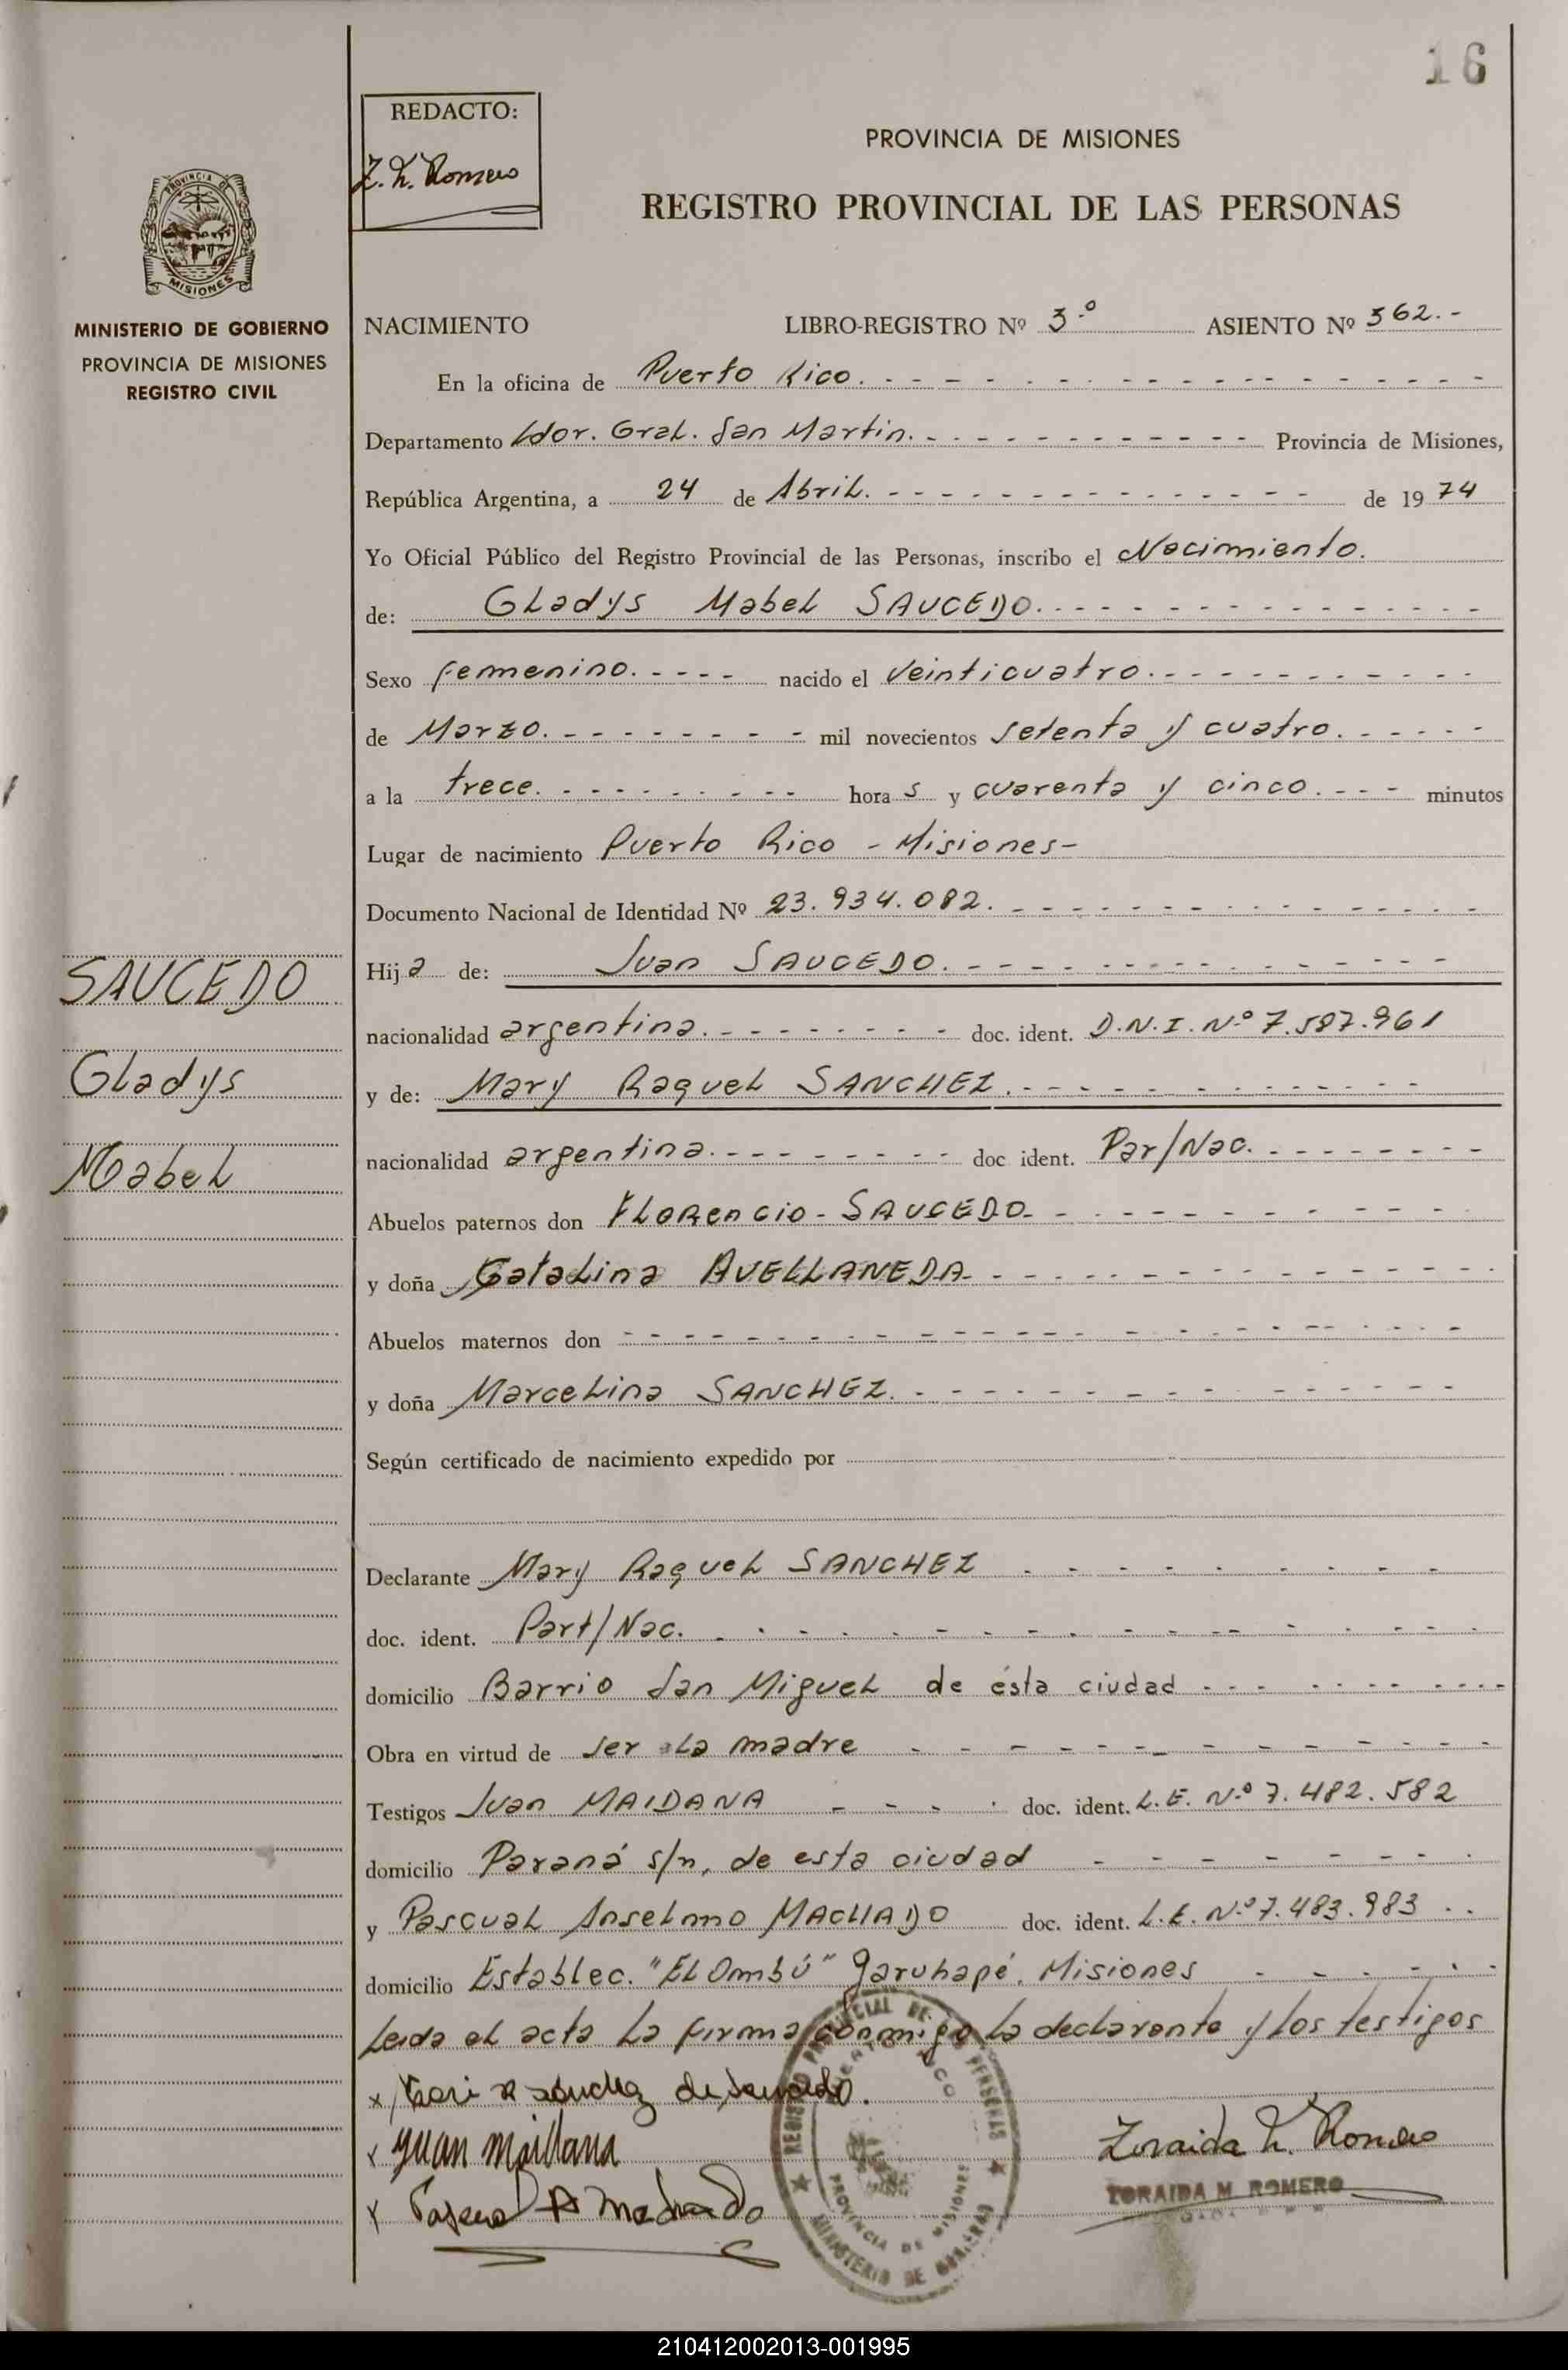 16
REDACTO:
Z. M. Romero
PROVINCIA DE MISIONES
REGISTRO PROVINCIAL DE LAS PERSONAS
PROVINCIA DE
MISIONES
MINISTERIO DE GOBIERNO
PROVINCIA DE MISIONES
REGISTRO CIVIL
NACIMIENTO LIBRO-REGISTRO Nº 3.º ASIENTO Nº 562.-
En la oficina de Puerto Rico.
Departamento Ldor. Gral. San Martin. Provincia de Misiones,
República Argentina, a 24 de Abril. de 1974
Yo Oficial Público del Registro Provincial de las Personas, inscribo el Nacimiento.
de: Gladys Mabel SAUCEDO.
Sexo femenino. nacido el veinticuatro.
de Marzo. mil novecientos setenta y cuatro.
a la trece. horas y cuarenta y cinco. minutos
Lugar de nacimiento Puerto Rico - Misiones-
Documento Nacional de Identidad Nº 23.934.082.
SAUCEDO
Gladys
Mabel
Hija de: Juan SAUCEDO.
nacionalidad argentina. doc. ident. D.N.I. N.º 7.587.961
y de: Mary Raquel SANCHEZ.
nacionalidad argentina. doc ident. Par/Nac.
Abuelos paternos don Florencio- SAUCEDO-
y doña Catalina AVELLANEDA-
Abuelos maternos don
y doña Marcelina SANCHEZ.
Según certificado de nacimiento expedido por
Declarante Mary Raquel SANCHEZ
doc. ident. Part/Nac.
domicilio Barrio San Miguel de ésta ciudad
Obra en virtud de ser la madre
Testigos Juan MAIDANA doc. ident. L.E. N.º 7.482.582
domicilio Paraná s/n, de esta ciudad
y Pascual Anselmo MACHADO doc. ident. L.E. N.º 7.483.983
domicilio Establec. "El Ombú" Garuhapé, Misiones
Leida el acta la firma conmigo la declarante y los testigos
x Mari R sanchez de Saucedo.
x Juan Maidana
x Pascual A Machado
Zoraida M. Romero
ZORAIDA M ROMERO
REGISTRO PROVINCIAL DE LAS PERSONAS
PUERTO RICO
PROVINCIA DE MISIONES
MINISTERIO DE GOBIERNO
210412002013-001995